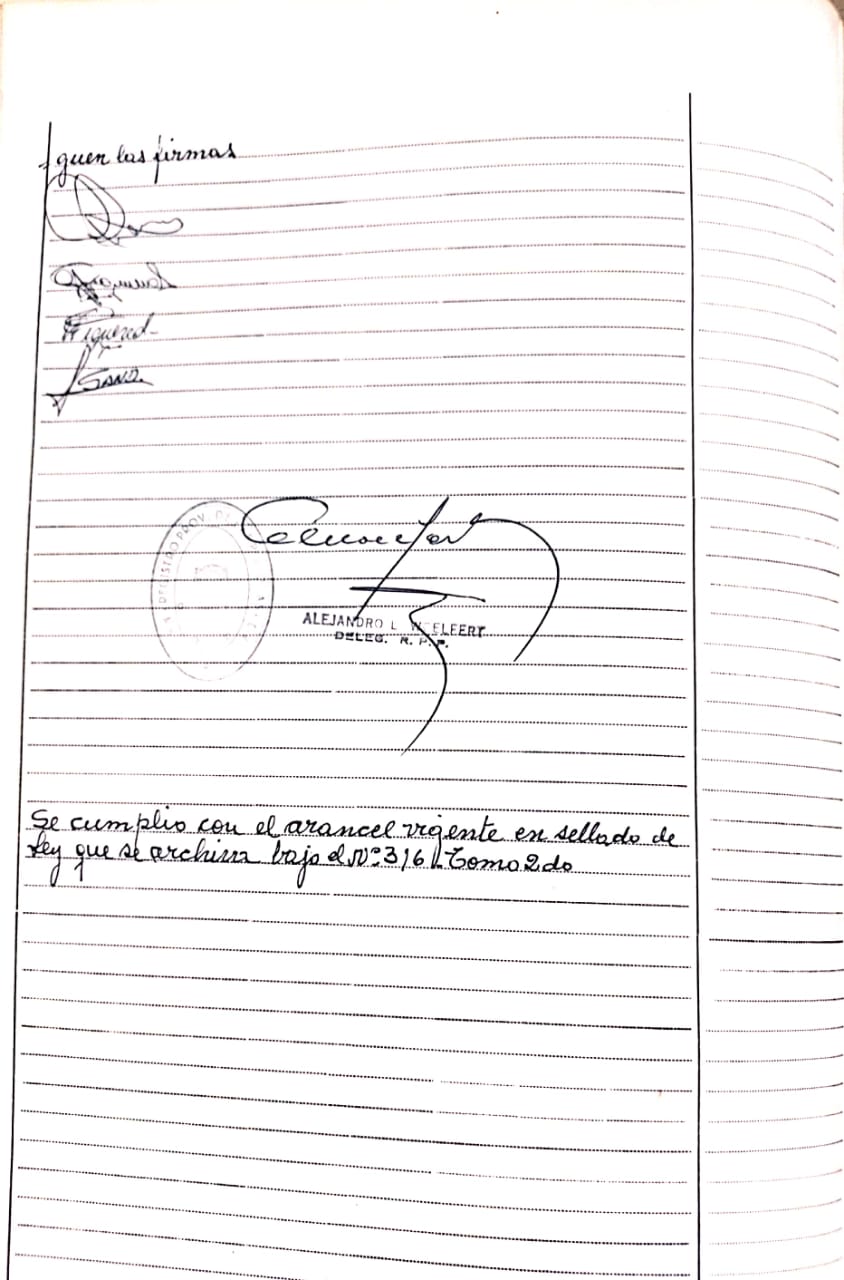 guen las firmas
Figuered
SANO.
REGISTRO PROV. DE
ALEJANDRO L
DELEG. R. P. P.
Se cumplio con el arancel vigente en sellado de
Ley que se archiva bajo el Nº 316 Tomo 2do